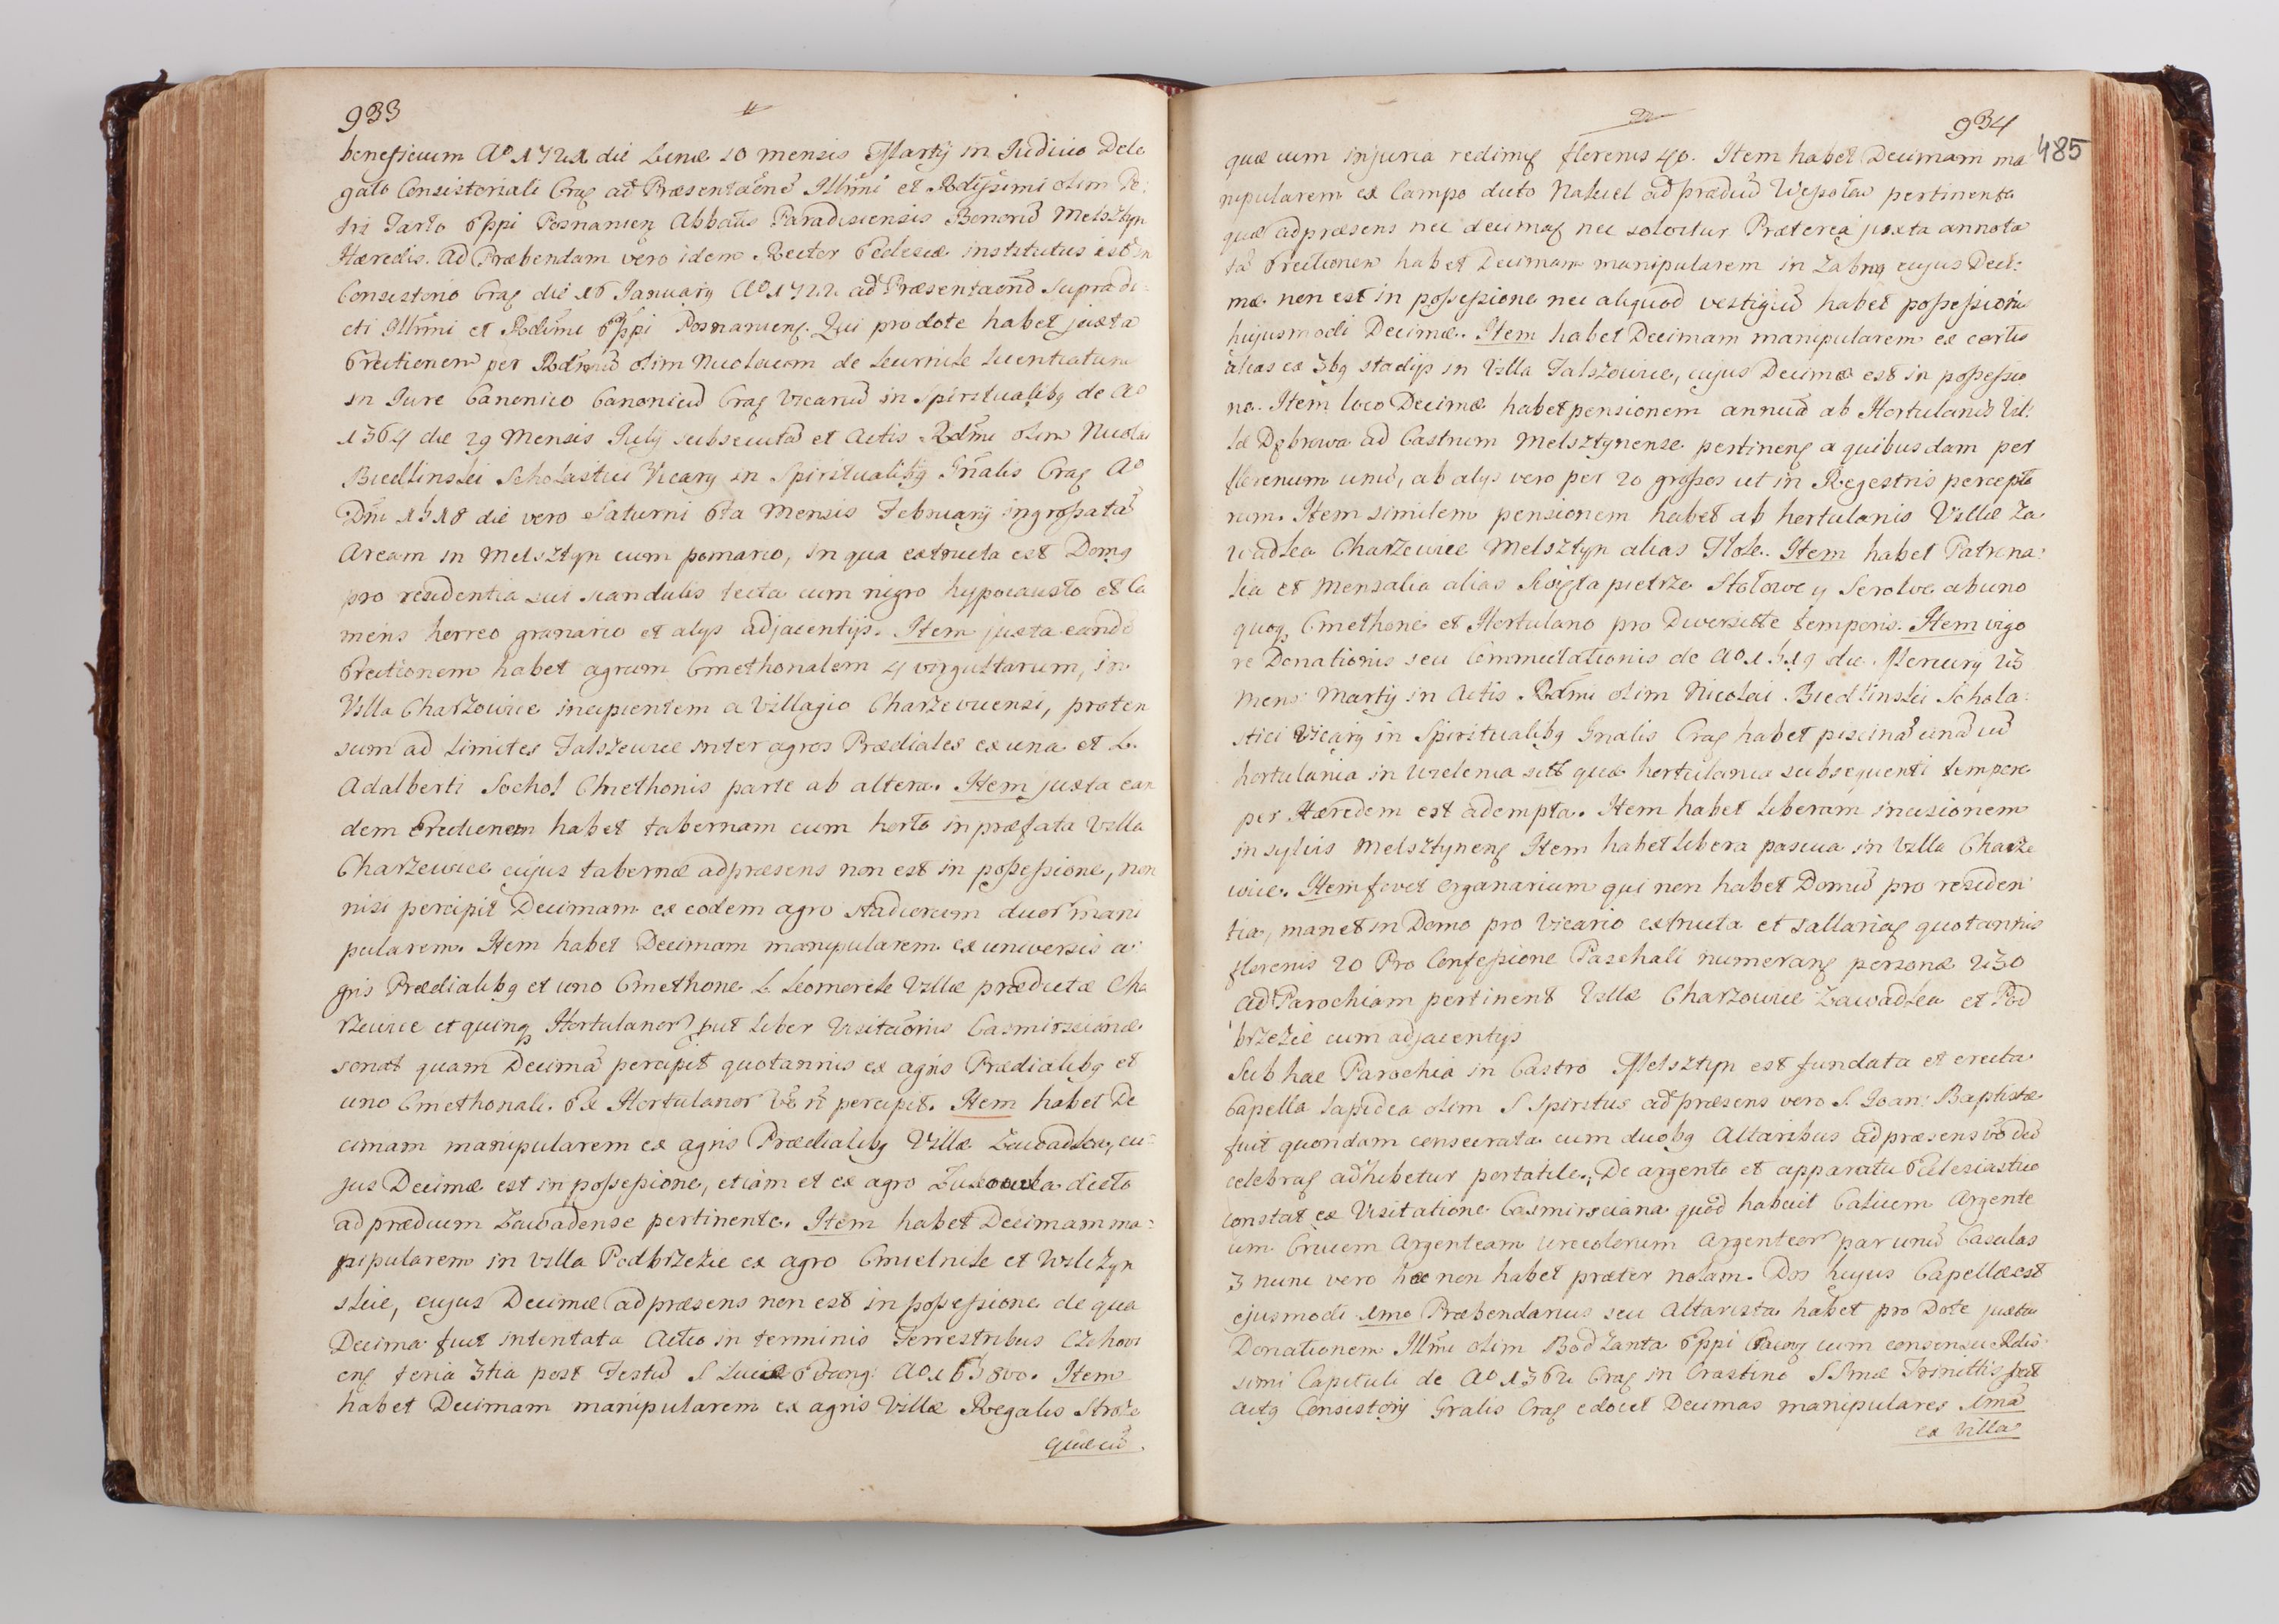 933
beneficium Aº 1721 die Lunæ 10 mensis Martij in Judicio Dele
gato Consistoriali Crac ad Præsentaōne Illmi et Rdissimi olim Pe
tri Tarlo Eppi Posnanien Abbatis Paradisiensis Bonorū Melsztyn
Hæredis. Ad Præbendam vero idem Rector Ecclesiæ institutus est in
Consistorio Crac die 16 January Aº 1722 ad Præsentaonē Supradi
cti Illmi et Rdmi Eppi Posnanien. Qui pro dote habet juxta
Erectionem per Rdmū olim Nicolaum de licentiatum
in Jure Canonico Canonicū Crac Vicariū in Spiritualibg de Aº
1364 die 29 Mensis July subsecutā et Actis Rdmi olim Nicolai
Biedlinski Scholastici Vicary in Spiritualibg Gnālis Crac Aº
Dni 1518 die vero Saturni 6ta Mensis February ingrossatā
Aream in Melsztyn cum pomario, in qua extructa est Domg
pro residentia sui scandulis tecta cum nigro hypocausto et Ca
meris horreo granario et alys adjacentijs. Item juxta eandē
Erectionem habet agrum Cmethonalem 4 virgultarum, in
Villa Charzowice incipientem a Villagio Charzevicensi, proten
sum ad limites Falszewice inter agros Prædiales ex una et L.
Adalberti Sochol Cmethonis parte ab altera. Item juxta ean
dem Erectionem habet tabernam cum horto in præfata Villa
Charzewice cujus tabernæ adpræsens non est in possessione, non
nisi percipit Decimam ex eodem agro stadiorum duor mani
pularem. Item habet Decimam manipularem ex universis a
gris Prædialibg et uno Cmethone L. Villæ prædictæ Cha
rzewice et quinq Hortulanor put liber Visitaōnis Casmirscianæ
sonat quam Decimā percipit quotannis ex agris Prædialibg et
uno Cmethonali. Ex Hortulanor vō n percipit. Item habet De
cimam manipularem ex agris Prædialibg Villæ Zawadka, cu-
jus Decimæ est in possessione, etiam et ex agro dicto
ad prædium Zawadense pertinente. Item habet Decimam ma-
nipularem in Villa Podbrzezie ex agro Cmielnik et Wilczyn
skie, cujus Decimæ adpræsens non est in possessione de qua
Decima fuit intentata Actio in terminis Terrestribus Czchovi
en feria 3tia post Festū S Lucæ Evang: Aº 1658vo. Item
habet Decimam manipularem ex agris Villæ Regalis Stroze
quæ cū.
934
485
quæ cum injuria redimi florenis 40. Item habet Decimam ma
nipularem ex Campo dicto Nakiel ad prædiū Wesołow pertinente
quæ adpræsens nec decimat nec solvitur Præterea juxta annota
tā Erectionem habet Decimam manipularem in Zabno cujus Deci:
mæ non est in possessione nec aliquod vestigiū habet possessionis
hujusmodi Decimæ. Item habet Decimam manipularem ex certis
alias ex 3bg stadijs in Villa Falszowice, cujus Decimæ est in possessio
ne. Item loco Decimæ habet pensionem annuā ab Hortulanis Vil:
læ Dębrowa ad Castrum Melsztynense pertinen a quibusdam per
florenum unū, ab alys vero per 20 grossos ut in Regestris percepto
rum. Item similem pensionem habet ab hortulanis Villæ Za
wadka Charzewice Melsztyn alias Item habet Patrina:
lia et mensalia alias Swiętapietrze Stołowe y Serowe ab uno
quoq Cmethone et Hortulano pro Diversitte temporis. Item vigo
re Donationis seu Commutationis de Aº 1519 die Mercury 23
mens Martij in Actis Rdmi olim Nicolai Biedlinski Schola:
stici Vicary in Spiritualibg Gnalis Crac habet piscinā unā cū
hortulania in Wielenia quæ hortulania subsequenti tempore
per Hæredem est adempta. Item habet liberam incisionem
in sylvis Melsztynen Item habet libera pascua in Villa Charze
wice. Item fovet organarium qui non habet Domū pro residen
tia, manet in Domo pro Vicario extructa et sallariat quotannis
florenis 20 Pro Confessione Paschali numerant personæ 230
Ad Parochiam pertinent Villæ Charzowice Zawadka et Pod
brzezie cum adjacentijs
Sub hac Parochia in Castro Melsztyn est fundata et erecta
Capella lapidea olim S Spiritus adpræsens vero S. Joan: Baptistæ
fuit quondam consecrata cum duobg Altaribus adpræsens vō dū
celebrat adhibetur portatile. De argento et apparatu Ecclesiastico
constat ex Visitatione Casmirsciana quod habuit Calicem Argente
um Crucem Argenteam Urceolorum Argenteor par unū Casulas
3 nunc vero hæc non habet præter nolam. Dos hujus Capellæ est
ejusmodi 1mo Præbendarius seu Altarista habet pro Dote juxta
Donationem Illmi olim Bodzanta Eppi Cracov cum consensu Rdis
simi Capituli de Aº 1362 Crac in Crastino SSmæ Trinittis
Actg Consistory Gralis Crac edocet Decimas manipulares 1ma
ex Villa